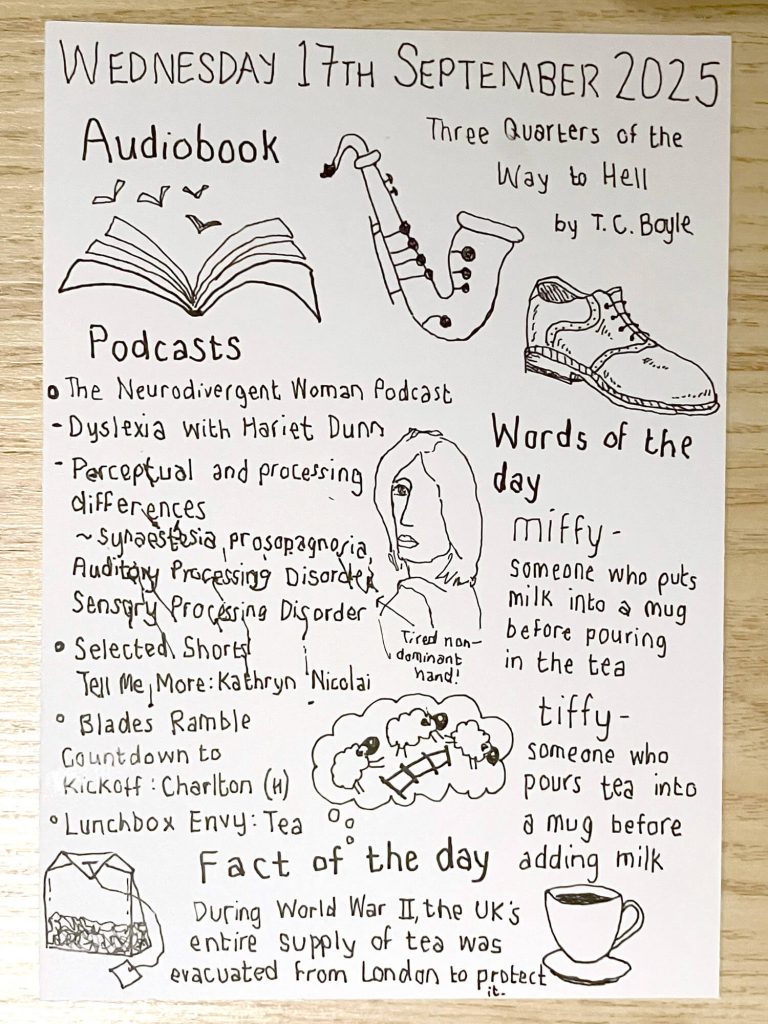 WEDNESDAY 17TH SEPTEMBER 2025
Audiobook
Three Quarters of the
Way to Hell
by T. C. Boyle
Podcasts
The Neurodivergent Woman Podcast
- Dyslexia with Hariet Dunn
- Perceptual and processing
differences
~ Synaestesia, prosopagnosia,
Auditory Processing Disorder
Sensory Processing Disorder
Selected Shorts
Tell Me More: Kathryn Nicolai
Blades Ramble
Countdown to
Kickoff: Charlton (H)
Lunchbox Envy: Tea
Tired non-
dominant
hand!
Words of the
day
miffy -
someone who puts
milk into a mug
before pouring
in the tea
tiffy -
someone who
pours tea into
a mug before
adding milk
Fact of the day
During World War II, the UK's
entire supply of tea was
evacuated from London to protect
it.